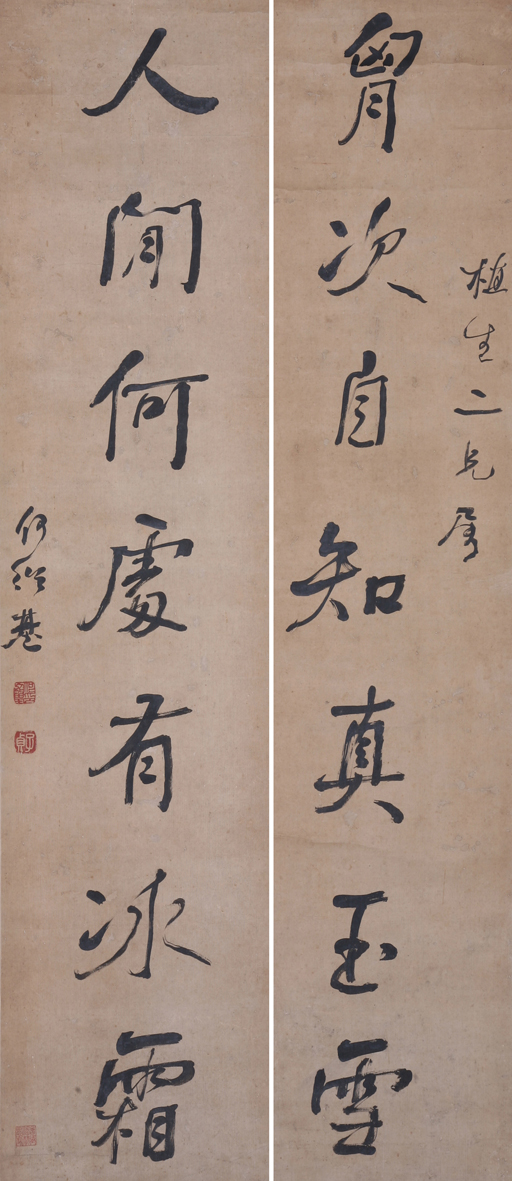 植生二兄屬
胷次自知真玉雪
人閒何處有冰霜
何紹基